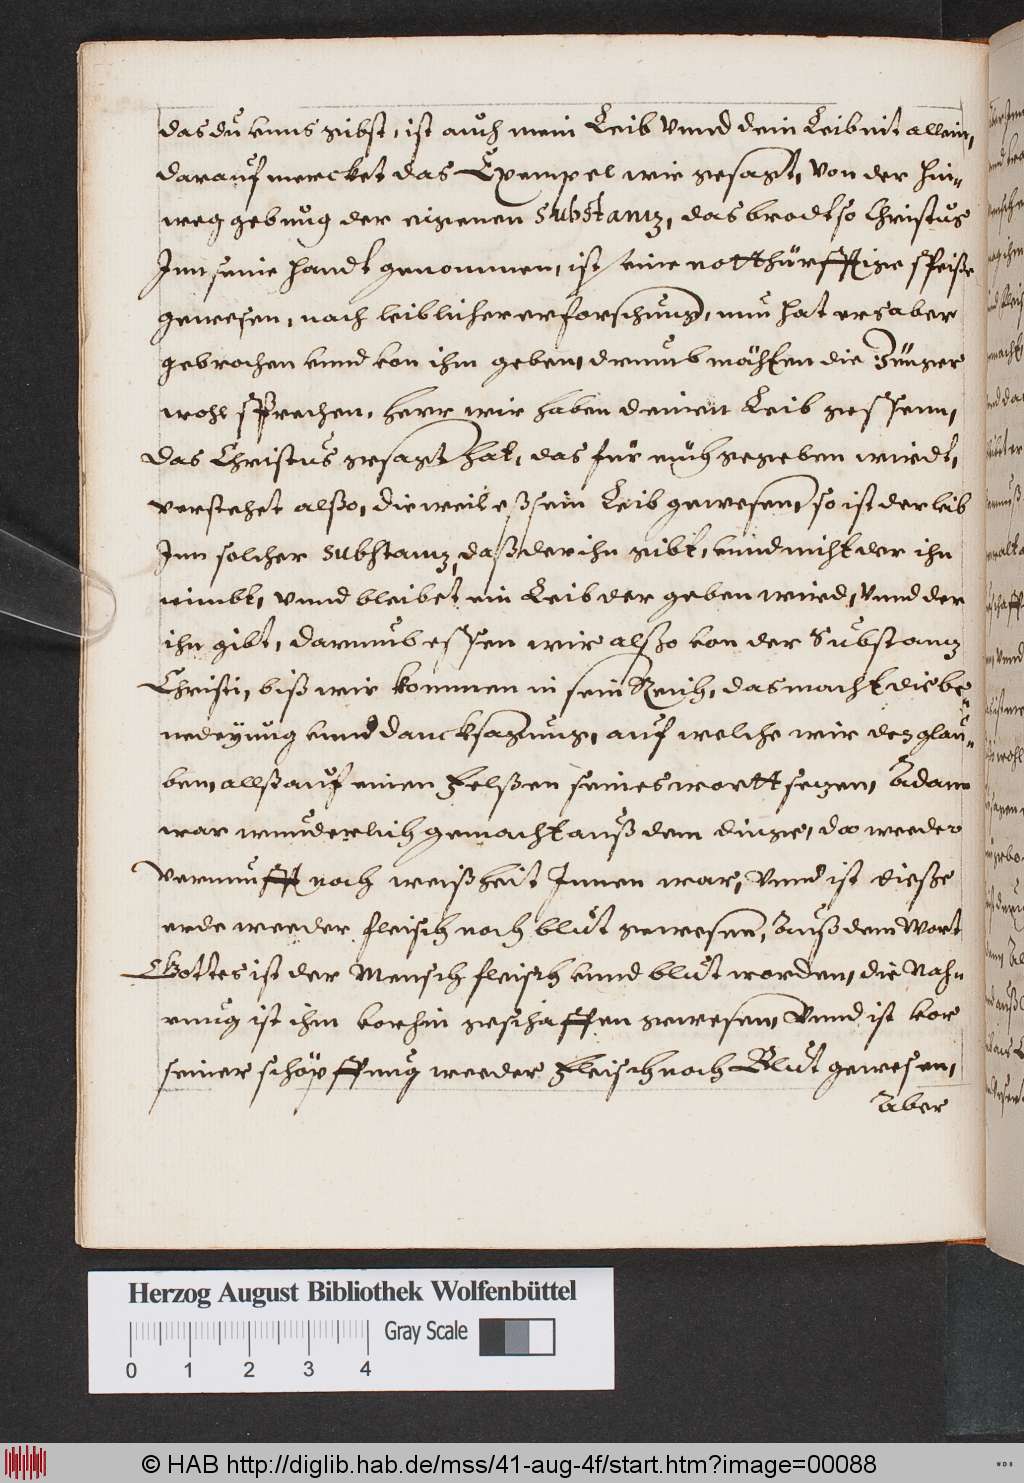 das du unns gibst, ist auch mein Leib vnnd dein Leib nit allein,
darauf mercket das Exempel wie gesagt, von der hin-
weg gebung der eigenen Substantz, das brodt so Christus
Inn seine handt genommen, ist eine notthürfftige speiße
gewesen, nach leiblicher erforschung, nun hat ers aber
gebrochen vnnd von ihm geben, drumb möchten die Jünger
wohl sprechen, herr wir haben deinen Leib gessenn,
das Christus gesagt hat, das für euch gegeben wirdt,
verstehet alßo, dieweil eß sein Leib gewesen, so ist der leib
Inn solcher substantz, daß der ihn gibt, vnnd nicht der ihn
nimbt, vnnd bleibet ein Leib der geben wird, vnnd der
ihn gibt, darumb essen wir alßo von der Substantz
Christi, biß wir kommen in sein Reich, das macht die be-
nedeyung vnnd dancksagung, auf welche wir den glau-
ben, allß auf einen Felßen seines wortt setzen, Adam
war wunderlich gemacht auß dem dinge, da weeder
vernunfft noch weißheit Innen war, vnnd ist dieße
erde weeder fleisch noch blut gewesenn, Auß dem Wort
Gottes ist der Mensch fleisch vnnd blut worden, die Nah-
rung ist ihm vorhin geschaffen gewesen, Vnnd ist vor
seiner schöpffung weeder Fleisch noch Blut gewesen,
Aber
Herzog August Bibliothek Wolfenbüttel
Gray Scale
0 1 2 3 4
© HAB http://diglib.hab.de/mss/41-aug-4f/start.htm?image=00088